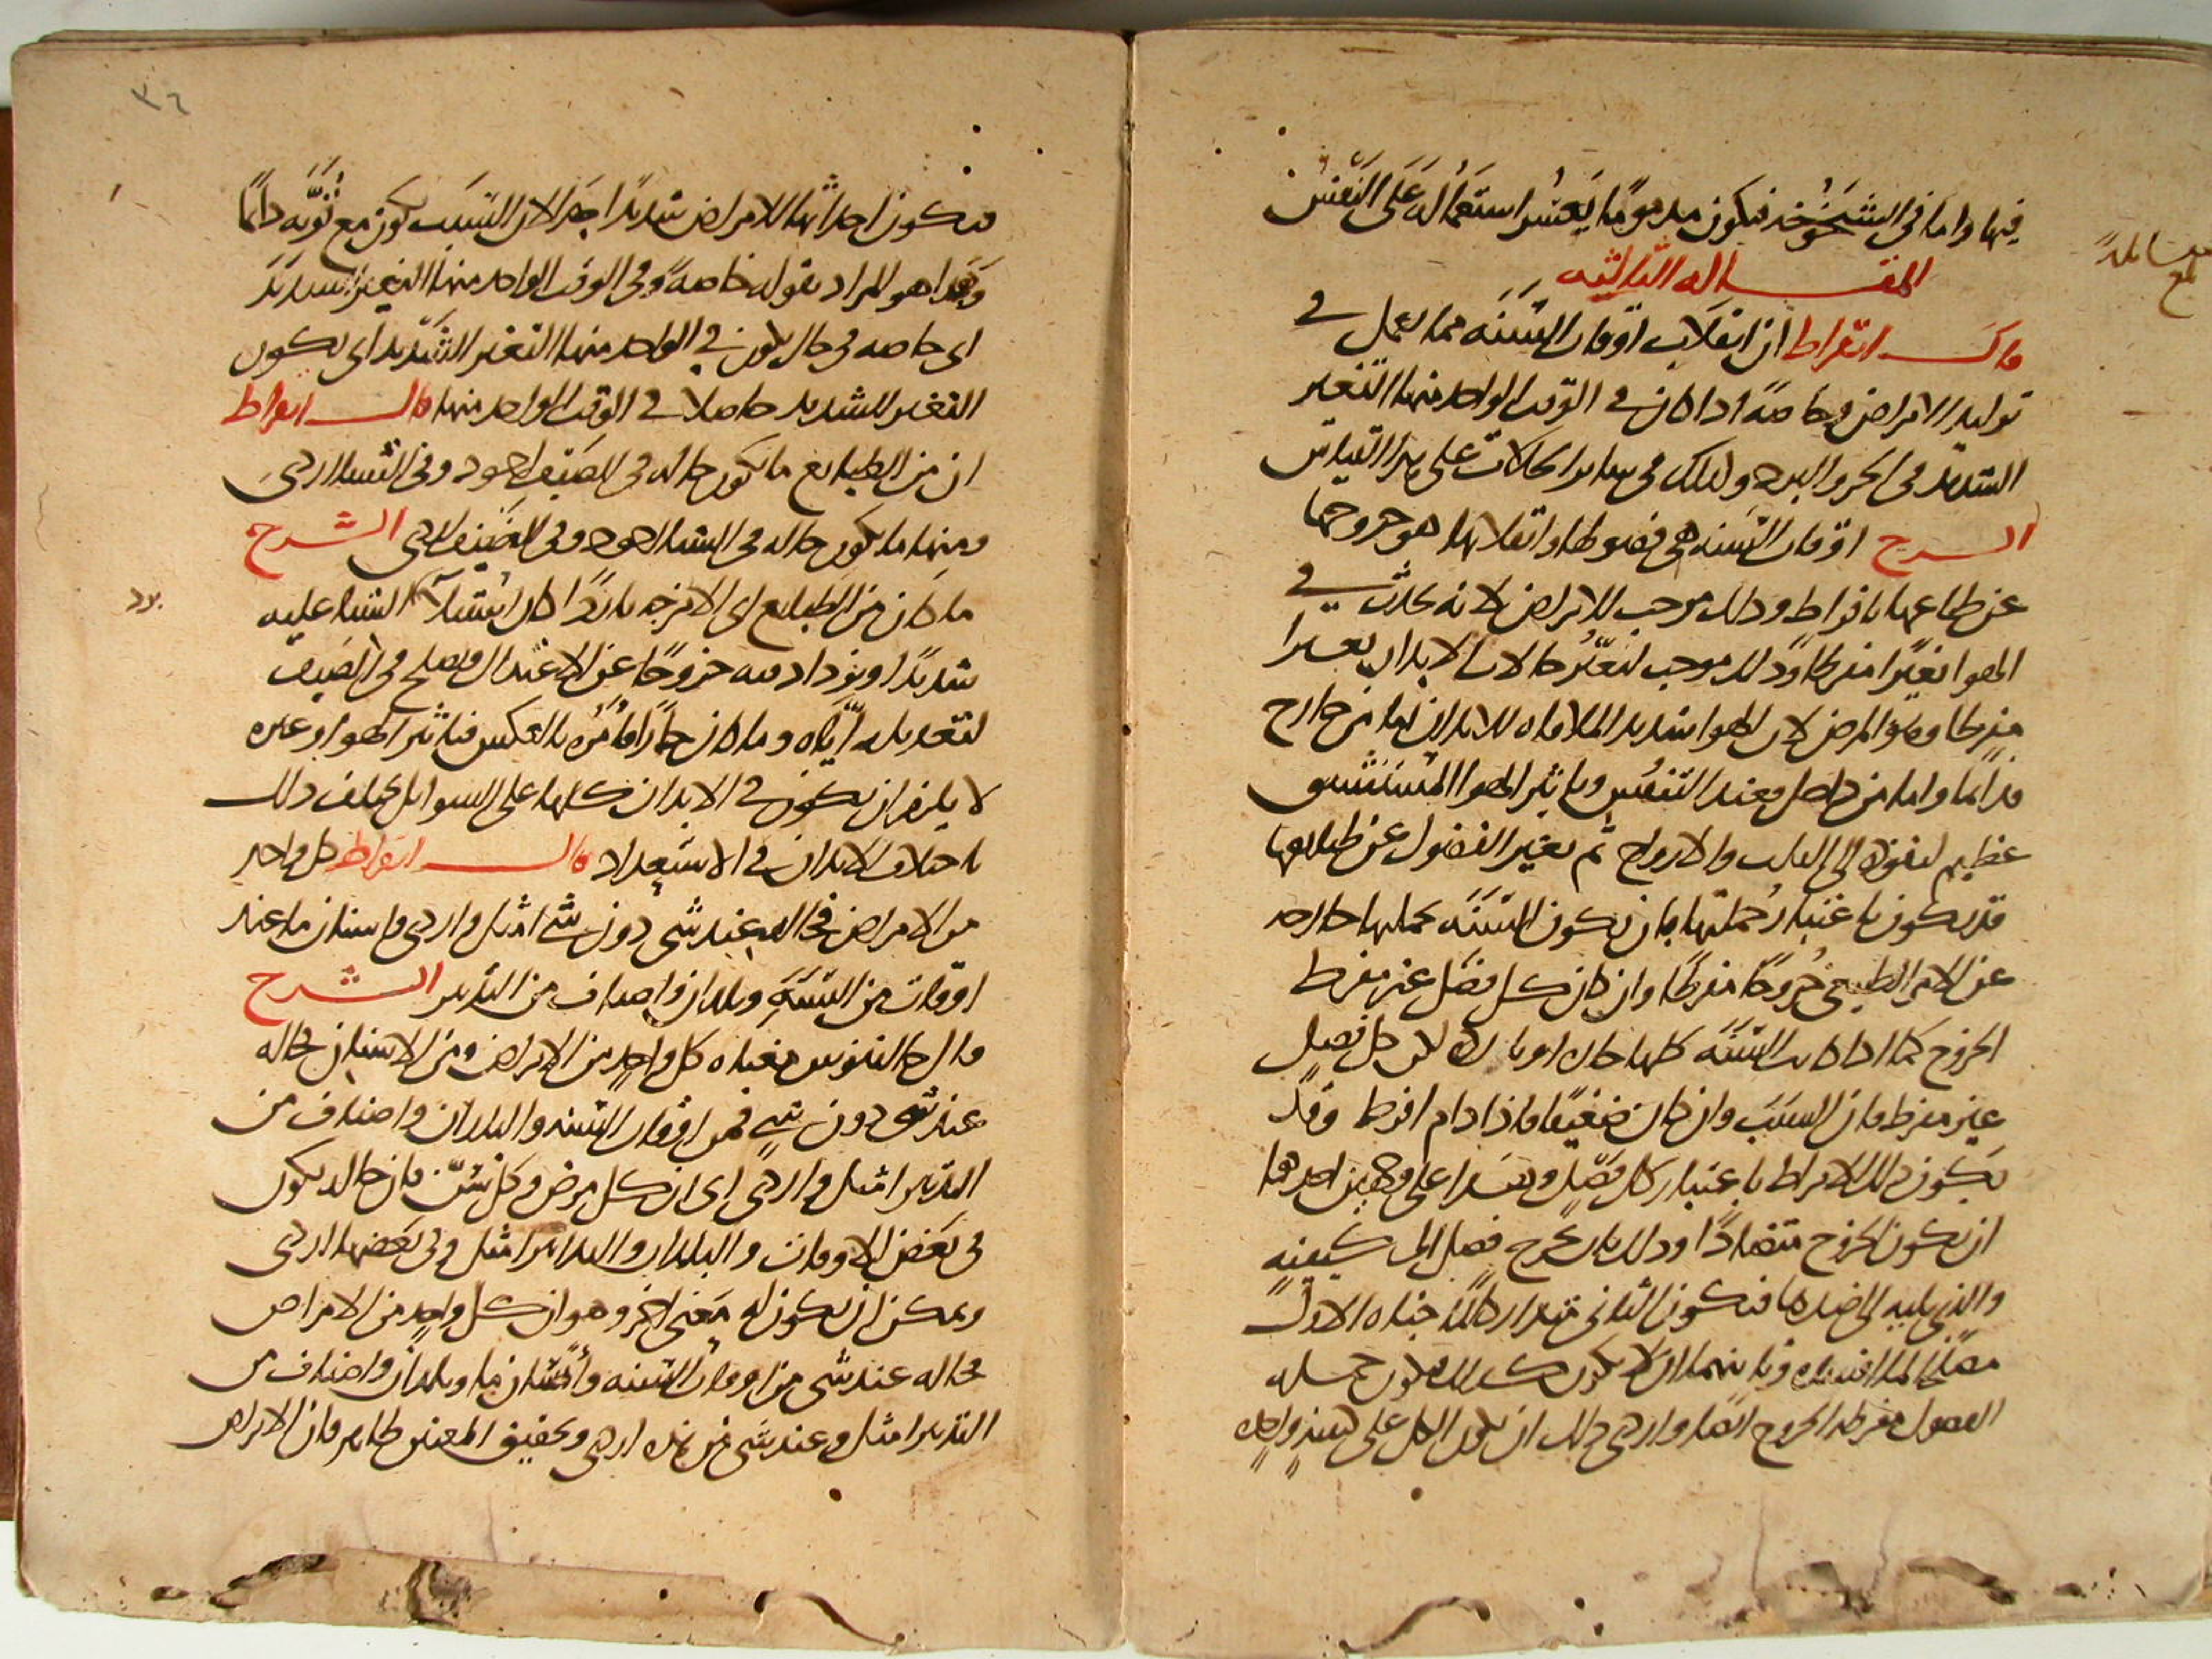 فيها واما فى الشيخوخه فيكون مذموما يعسر استعماله على النفس
المقاله الثالثه
قال ابقراط ان انقلاب اوقات السنه مما يعمل فى
توليد الامراض وخاصة اذا كان فى الوقت الواحد منها التغير
الشديد فى الحر والبرد وكذلك فى ساير الحالات على هذا القياس
الشرح اوقات السنه هى فصولها وانقلابها هو خروجها
عن طباعها بافراط وذلك موجب للامراض لانه يحدث فى
الهوا تغيرا مفرطا وذلك موجب لتغير حالات الابدان تغيرا
مفرطا وهو المرض لان الهوا شديد الملاقاه للابدان اما من خارج
فدايما واما من داخل فعند التنفس وتاثير الهوا المستنشق
عظيم لنفوذه الى القلب والارواح ثم تغير الفصول عن طبايعها
قد يكون باعتبار جملتها بان يكون السنه بجملتها خارجه
عن الامر الطبيعى خروجا مفرطا وان كان كل فصل غير مفرط
الخروج كما اذا كانت السنه كلها حاره او بارده لكن كل فصل
غير مفرط فان السبب وان كان ضعيفا فاذا دام افرط وقد
يكون ذلك الافراط باعتبار كل فصل وهذا على وجهين احدهما
ان يكون الخروج متضادا وذلك بان يخرج فصل الى كيفيه
والذى يليه الى ضدها فيكون الثانى متداركا لما جناه الاول
مصلحا لما افسده وثانيهما ان لا يكون كذلك فيكون جمله
الفصول مفرطه الخروج ايضا واردى ذلك ان يكون الكل على كيفيه واحده
٣٦
فيكون احداثها للامراض شديدا جدا لان السبب يكون مع قوته دايما
وهذا هو المراد بقوله خاصة وفى الوقت الواحد منها التغير الشديد
اى خاصه فى حال يكون فى الواحد منها التغير الشديد اى يكون
التغير الشديد حاصلا فى الوقت الواحد منها قال ابقراط
ان من الطبايع ما يكون حاله فى الصيف اجود وفى الشتا اردى
ومنها ما يكون حاله فى الشتا اجود وفى الصيف اردى الشرح
ما كان من الطبايع اى الامزجه باردا كان الشتا عليه
شديدا ويزداد فيه خروجا عن الاعتدال ويصلح فى الصيف
لتعديله اياه وما كان حارا فامره بالعكس فتاثير الهوا وغيره
لا يلزم ان يكون فى الابدان كلها على السوا بل يختلف ذلك
باختلاف الابدان فى الاستعداد قال ابقراط كل واحد
من الامراض فحاله عند شى دون شى امثل واردى واسنان ما عند
اوقات من السنه وبلدان واصناف من التدبير الشرح
قال جالينوس معناه كل واحد من الامراض ومن الاسنان فحاله
عند شى دون شى فمن اوقات السنه والبلدان واصناف من
التدبير امثل واردى اى ان كل مرض وكل سن فان حاله يكون
فى بعض الاوقات والبلدان والتدابير امثل وفى بعضها اردى
ويمكن ان يكون له معنى اخر وهو ان كل واحد من الامراض
فحاله عند شى من اوقات السنه واسنان ما وبلدان واصناف من
التدبير امثل وعند شى من هذه اردى وتحقيق المعنى ظاهر فان الامراض